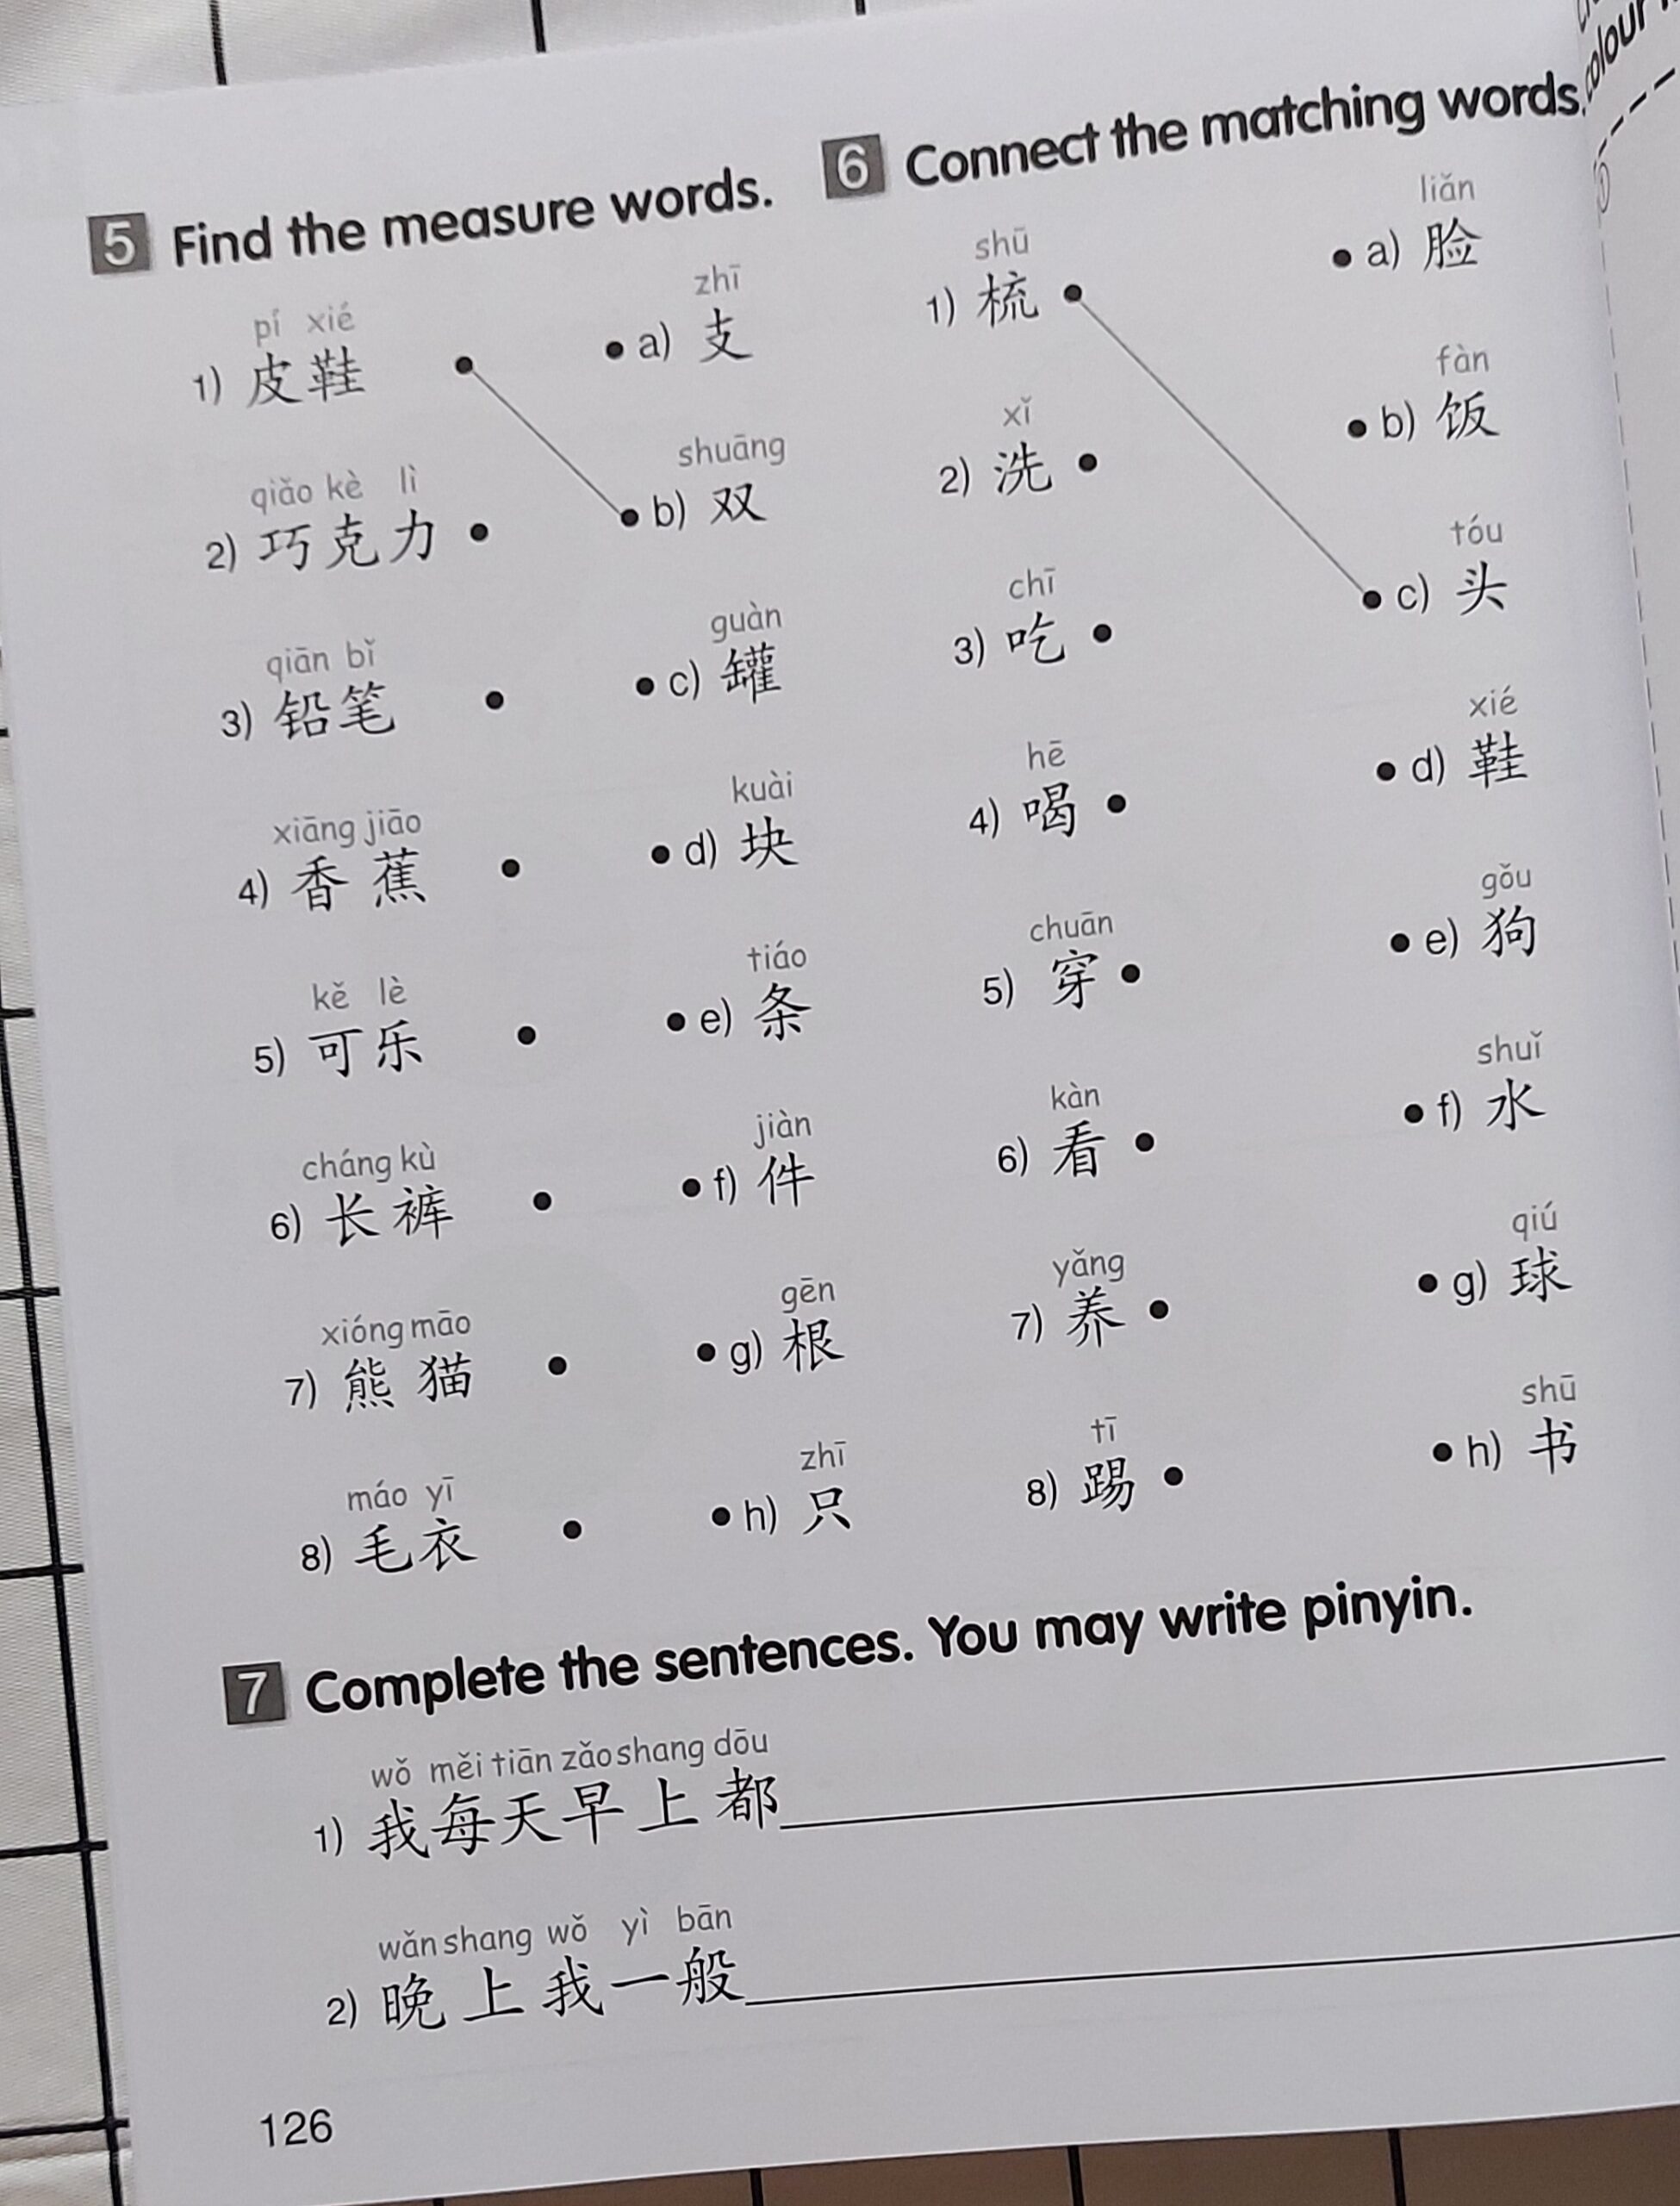 colour
5 Find the measure words.
pí xié
1) 皮鞋
zhī
a) 支
qiǎo kè lì
2) 巧克力
shuāng
b) 双
qiān bǐ
3) 铅笔
guàn
c) 罐
xiāng jiāo
4) 香蕉
kuài
d) 块
kě lè
5) 可乐
tiáo
e) 条
cháng kù
6) 长裤
jiàn
f) 件
xióng māo
7) 熊猫
gēn
g) 根
máo yī
8) 毛衣
zhī
h) 只
6 Connect the matching words.
shū
1) 梳
liǎn
a) 脸
xǐ
2) 洗
fàn
b) 饭
chī
3) 吃
tóu
c) 头
hē
4) 喝
xié
d) 鞋
chuān
5) 穿
gǒu
e) 狗
kàn
6) 看
shuǐ
f) 水
yǎng
7) 养
qiú
g) 球
tī
8) 踢
shū
h) 书
7 Complete the sentences. You may write pinyin.
wǒ měi tiān zǎo shang dōu
1) 我每天早上都
wǎn shang wǒ yì bān
2) 晚上我一般
126